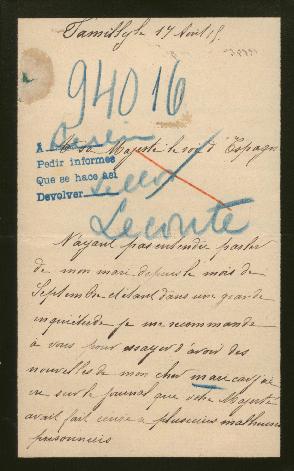 le 17 Août 15.
94016
A sa Majesté le roi d'Espagne
A Berlin
Pedir informes
Que se hace así
Devolver
Lecomte
N'ayant pas entendu parler
de mon mari depuis le mois de
Septembre et étant dans une grande
inquiétude je me recommande
à vous pour essayer d'avoir des
nouvelles de mon cher mari car j'ai
vu sur le journal que votre Majesté
avait fait rendre a plusieurs malheureux
prisonniers